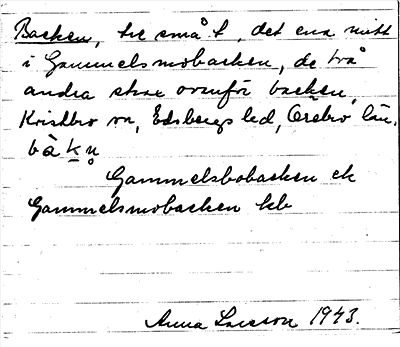 Backen, tre små t, det ena mitt
i Gammelsmobacken, de två
andra strax ovanför backen,
Kristbro vn, Edsbergs hd, Örebro län.
bàkn̥
Gammelsbobacken ek
Gammelsmobacken kb
Anna Larsson 1943.